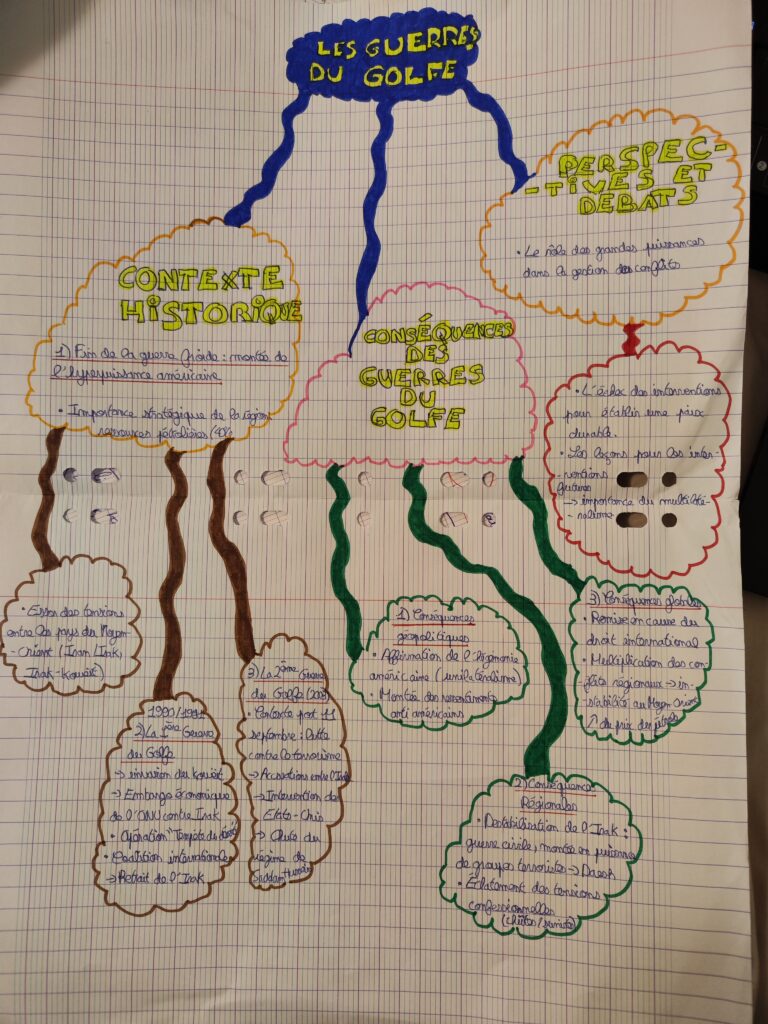 LES GUERRES
DU GOLFE
CONTEXTE
HISTORIQUE
1) Fin de la guerre froide : montée de
l'hyperpuissance américaine
• Importance stratégique de la région
ressources pétrolières (40%
• Essor des tensions
entre les pays du Moyen
-orient (Iran/Irak,
Irak-Koweït)
1990/1991
2) La 1ère Guerre
du Golfe
→ invasion du Koweït
→ Embargo économique
de l'ONU contre Irak
• Opération "Tempête du désert"
• Coalition internationale
→ Retrait de l'Irak
3) La 2ème Guerre
du Golfe (2003)
• Contexte post 11
septembre : lutte
contre le terrorisme
→ Accusations entre l'Irak
→ Intervention des
Etats-Unis
→ Chute du
régime de
Saddam Hussein
CONSÉQUENCES
DES
GUERRES
DU
GOLFE
1) Conséquences
géopolitiques
• Affirmation de l'hégémonie
américaine (unilatéralisme)
• Montée des ressentiments
anti américains
2) Conséquences
Régionales
• Destabilisation de l'Irak :
guerre civile, montée en puissance
de groupes terroristes → Daesh
• Éclatement des tensions
confessionnelles
(chiites/sunnites)
3) Conséquences globales
• Remise en cause du
droit international
• Multiplication des con-
flits régionaux → in-
stabilité au Moyen Orient
↗ du prix des pétroles
PERSPEC-
-TIVES ET
DEBATS
• Le rôle des grandes puissances
dans la gestion des conflits
• L'échec des interventions
pour établir une paix
durable.
• Les leçons pour les inter-
ventions
futures
→ importance du multilaté-
ralisme